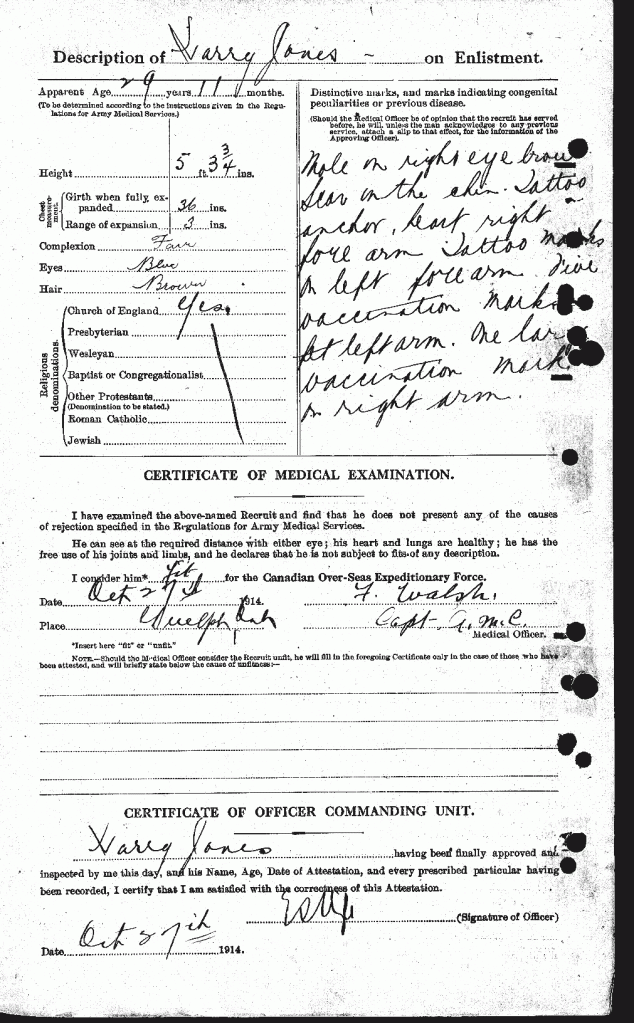 Description of Harry Jones on Enlistment.
Apparent Age 29 years 11 months.
(To be determined according to the instructions given in the Regu-
lations for Army Medical Services.)
Height 5 ft. 3 3/4 ins.
Chest measure-
ment.
Girth when fully ex-
panded 36 ins.
Range of expansion 3 ins.
Complexion Fair
Eyes Blue
Hair Brown
Religious
denominations.
Church of England Yes.
Presbyterian
Wesleyan
Baptist or Congregationalist
Other Protestants
(Denomination to be stated.)
Roman Catholic
Jewish
Distinctive marks, and marks indicating congenital
peculiarities or previous disease.
(Should the Medical Officer be of opinion that the recruit has served
before, he will, unless the man acknowledges to any previous
service, attach a slip to that effect, for the information of the
Approving Officer).
Mole on right eye brow
Scar on the chin. Tattoo
anchor, heart right
fore arm Tattoo marks
on left fore arm Five
vaccination marks
left arm. One lar
vaccination mark
on right arm.
CERTIFICATE OF MEDICAL EXAMINATION.
I have examined the above-named Recruit and find that he does not present any of the causes
of rejection specified in the Regulations for Army Medical Services.
He can see at the required distance with either eye; his heart and lungs are healthy; he has the
free use of his joints and limbs, and he declares that he is not subject to fits of any description.
I consider him* fit for the Canadian Over-Seas Expeditionary Force.
Date Oct 27th 1914.
F. Walsh.
Place Guelph Ont
Capt. A.M.C.
Medical Officer.
*Insert here "fit" or "unfit."
NOTE.—Should the Medical Officer consider the Recruit unfit, he will fill in the foregoing Certificate only in the case of those who have
been attested, and will briefly state below the cause of unfitness:—
CERTIFICATE OF OFFICER COMMANDING UNIT.
Harry Jones having been finally approved and
inspected by me this day, and his Name, Age, Date of Attestation, and every prescribed particular having
been recorded, I certify that I am satisfied with the correctness of this Attestation.
(Signature of Officer)
Date Oct 27th 1914.